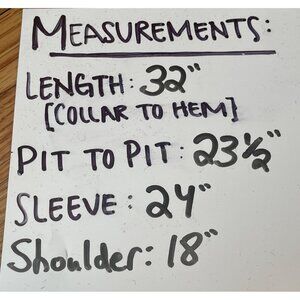 MEASUREMENTS:
LENGTH: 32"
[COLLAR TO HEM]
PIT TO PIT: 23½"
SLEEVE: 24"
Shoulder: 18"